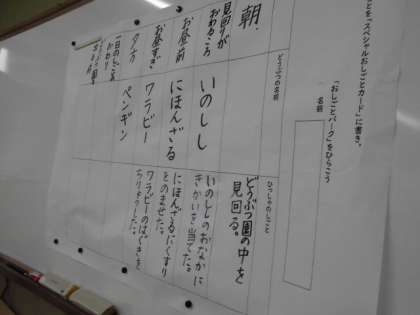 ことを「スペシャルおしごとカード」に書き、
「おしごとパーク」をひらこう
名前
どうぶつの名前
ひっしゃのしごと
朝
どうぶつ園の中を
見回る。
見回りが
おわるころ
いのしし
いのししのおなかに
きかいを当てた。
お昼前
にほんざる
にほんざるにくすり
をのませた。
お昼すぎ
ワラビー
ワラビーのはぐきを
ちりょうした。
夕方
ペンギン
一日のしごとの
おわり